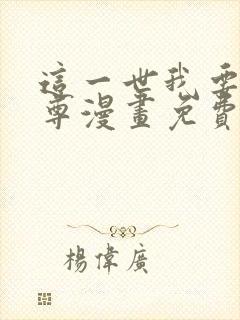 這一世我要
尊漫畫免費
楊偉廣